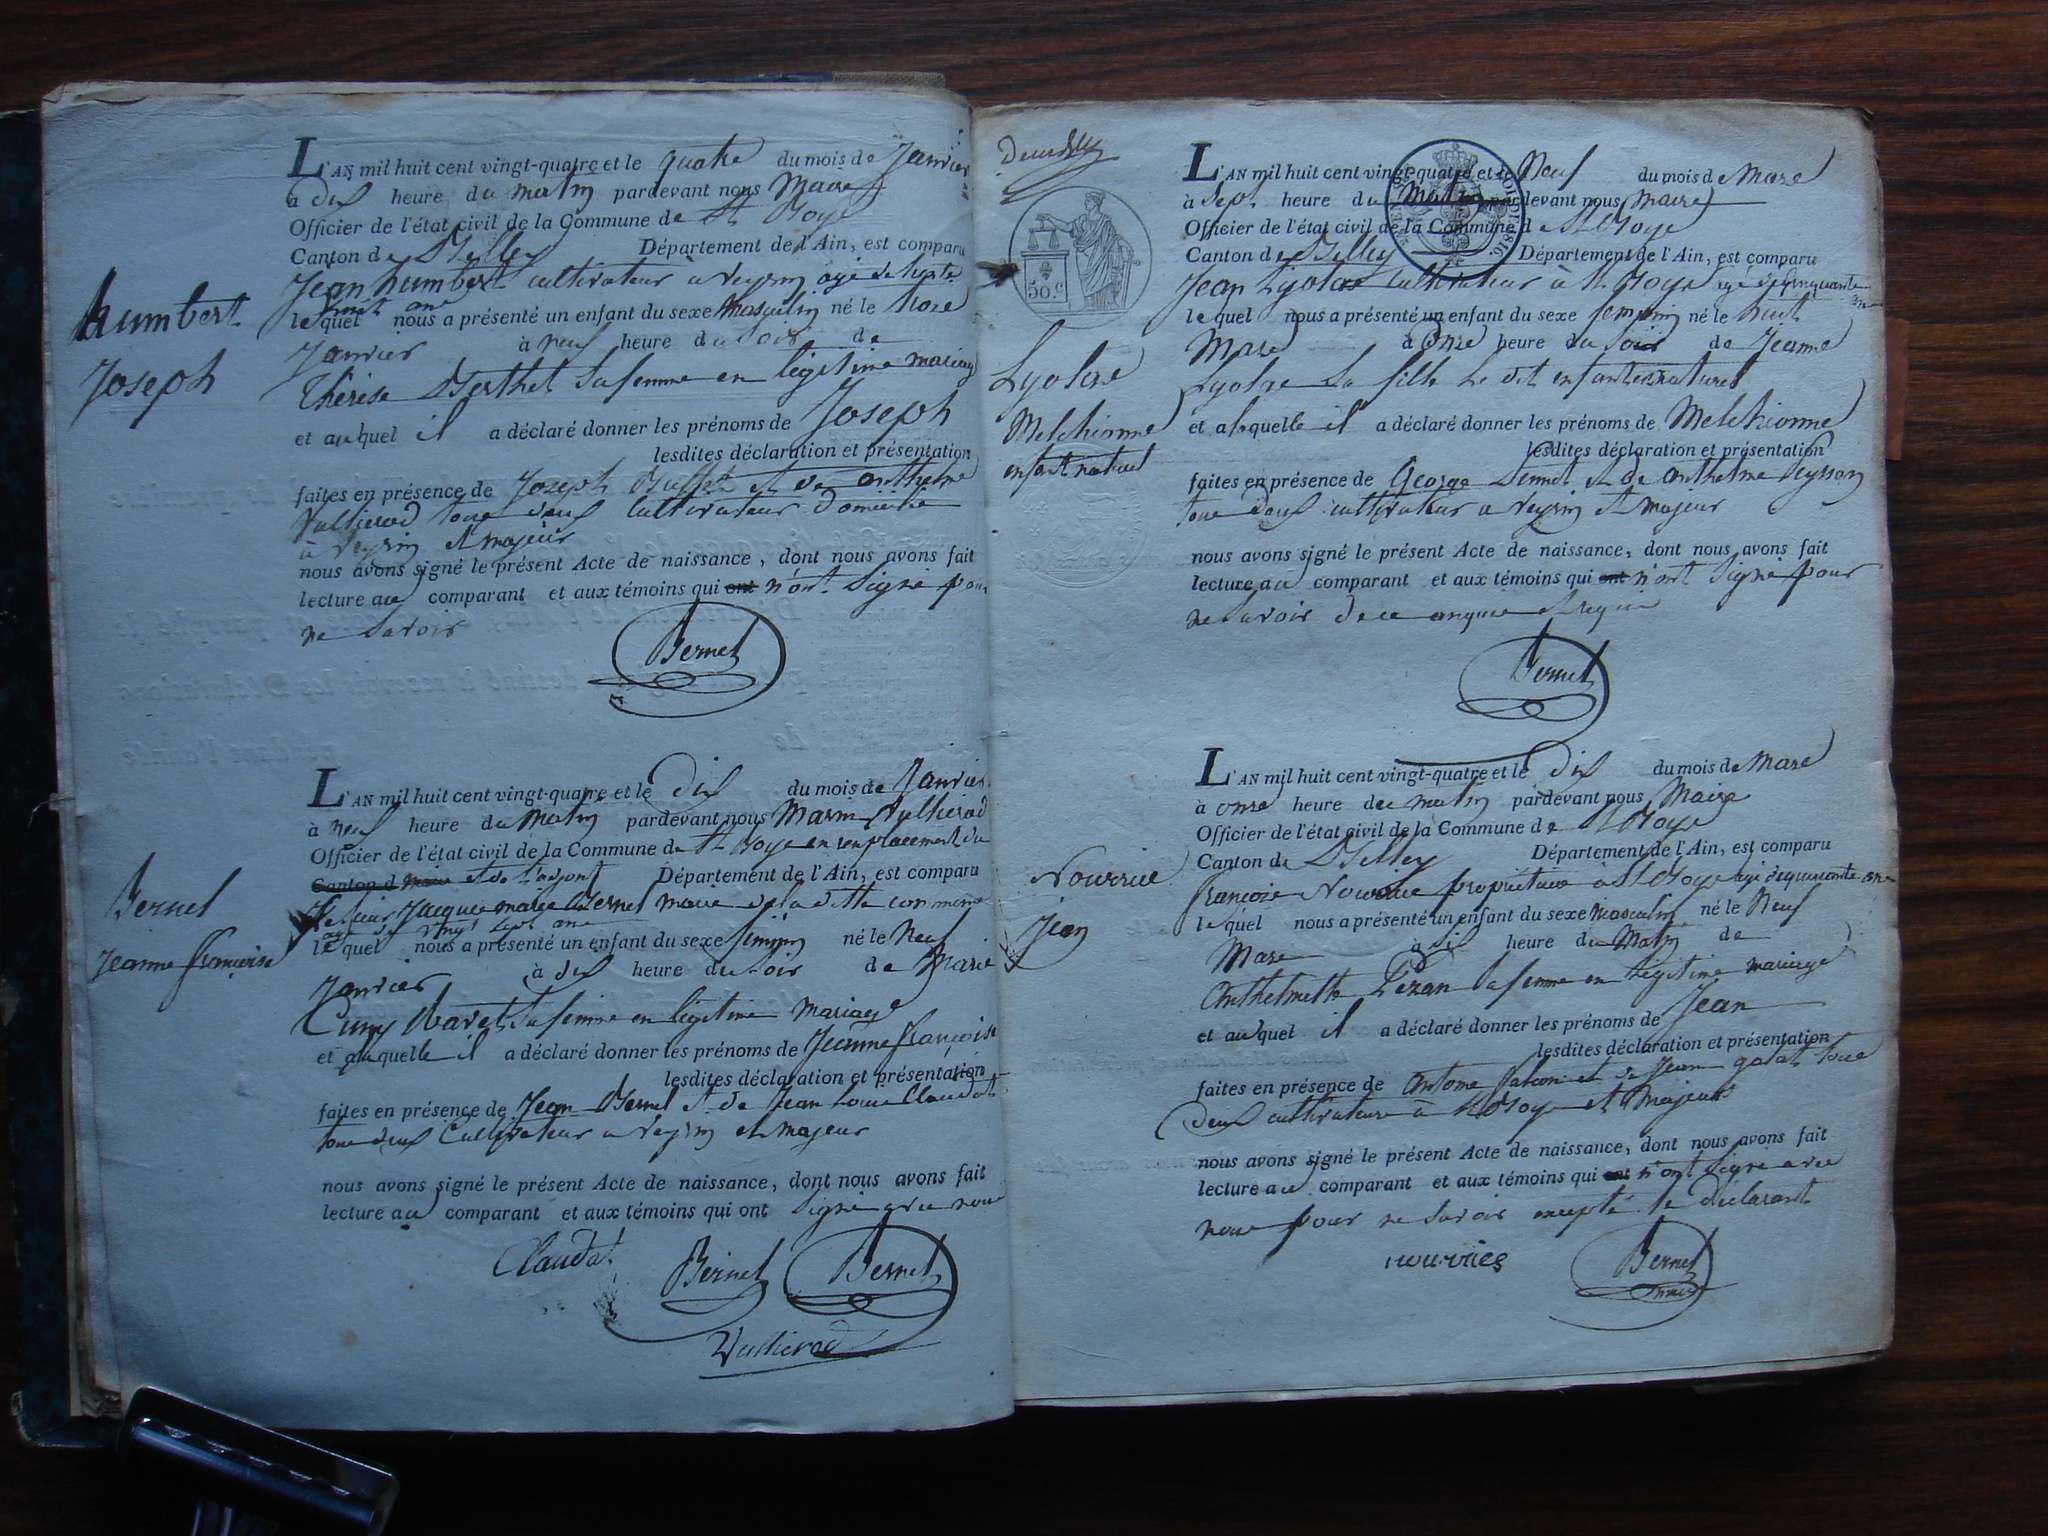 Humbert
Joseph
L'AN mil huit cent vingt-quatre et le quatre du mois de Janvier
à dix heure du matin pardevant nous Maire
Officier de l'état civil de la Commune de St Boys
Canton de Belley Département de l'Ain, est comparu
Jean humbert cultivateur à Veyrin agé de
le quel nous a présenté un enfant du sexe Masculin né le
Janvier à neuf heure du Soir de
thérèse Berthet sa femme en légitime mariage
et au quel il a déclaré donner les prénoms de Joseph
lesdites déclaration et présentation
faites en présence de Joseph Buffet et de anthelme
Vullierod tous deux cultivateur domicilié
à Veyrin et majeur
nous avons signé le présent Acte de naissance, dont nous avons fait
lecture au comparant et aux témoins qui ont n'ont Signé pour
ne Savoir
Bernet
Bernet
Jeanne françoise
L'AN mil huit cent vingt-quatre et le Dix du mois de Janvier
à neuf heure du Matin pardevant nous Marin Vullierod
Officier de l'état civil de la Commune de St Boys en remplacement du
Canton d Maire et de l'adjoint Département de l'Ain, est comparu
le Sieur Jacques marie Bernet maire de la ditte commune
agé de vingt Sept ans
le quel nous a présenté un enfant du sexe féminin né le Neuf
Janvier à dix heure du Soir de Marie
Cuny Bavet Sa femme en légitime Mariage
et a laquelle il a déclaré donner les prénoms de Jeanne françoise
lesdites déclaration et présentation
faites en présence de Jean Bernet et de Jean Louis Claudat
tous deux Cultivateur a Veyrin et majeur
nous avons signé le présent Acte de naissance, dont nous avons fait
lecture au comparant et aux témoins qui ont Signé avec nous
Claudat Bernet Bernet
Vullierod
50.c
Lyobre
Melchionne
enfant naturel
L'AN mil huit cent vingt-quatre et le Neuf du mois de Mars
à Sept heure du Matin pardevant nous Maire
Officier de l'état civil de la Commune de St Boys
Canton de Belley Département de l'Ain, est comparu
Jean Lyobre cultivateur à St Boys agé de cinquante
le quel nous a présenté un enfant du sexe feminin né le huit
Mars à Onze heure du soir de Jeanne
Lyobre Sa fille le dit enfant naturel
et a laquelle il a déclaré donner les prénoms de Melchionne
lesdites déclaration et présentation
faites en présence de George et de anthelme Peysson
tous deux cultivateur a Veyrin et majeur
nous avons signé le présent Acte de naissance, dont nous avons fait
lecture au comparant et aux témoins qui ont n'ont Signé pour
ne Savoir de ce enquis et requis
Bernet
Nourrice
Jean
L'AN mil huit cent vingt-quatre et le dix du mois de Mars
à onze heure du matin pardevant nous Maire
Officier de l'état civil de la Commune de St Boys
Canton de Belley Département de l'Ain, est comparu
françois Nourrice propriétaire à St Boys agé de quarante ans
le quel nous a présenté un enfant du sexe masculin né le Neuf
Mars à six heure du Matin de
Anthelmette Pezan sa femme en légitime mariage
et au quel il a déclaré donner les prénoms de Jean
lesdites déclaration et présentation
faites en présence de Antoine falcon et de Jean tous
deux cultivateurs à St Boys et Majeurs
nous avons signé le présent Acte de naissance, dont nous avons fait
lecture au comparant et aux témoins qui ont n'ont Signé avec
nous pour ne Savoir excepté le déclarant
nourrice Bernet